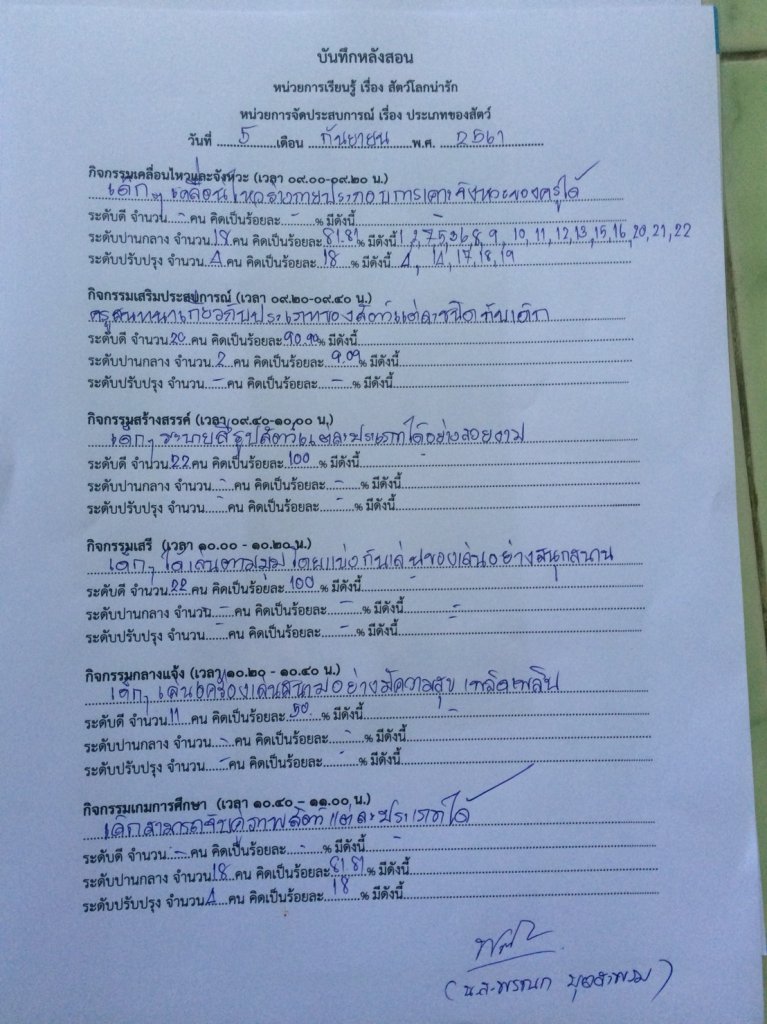 บันทึกหลังสอน
หน่วยการเรียนรู้ เรื่อง สัตว์โลกน่ารัก
หน่วยการจัดประสบการณ์ เรื่อง ประเภทของสัตว์
วันที่ 5 เดือน กันยายน พ.ศ. 2561
กิจกรรมเคลื่อนไหวและจังหวะ (เวลา ๐๙.๐๐-๐๙.๒๐ น.)
เด็กๆ เคลื่อนไหวร่างกายประกอบการเคาะจังหวะของครูได้
ระดับดี จำนวน - คน คิดเป็นร้อยละ - % มีดังนี้ -
ระดับปานกลาง จำนวน 18 คน คิดเป็นร้อยละ 81.81 % มีดังนี้ 1,2,7,5,3,6,8,9, 10,11,12,13,15,16,20,21,22
ระดับปรับปรุง จำนวน 4 คน คิดเป็นร้อยละ 18 % มีดังนี้ 4, 14,17,18,19
กิจกรรมเสริมประสบการณ์ (เวลา ๐๙.๒๐-๐๙.๔๐ น.)
ครูสนทนาเกี่ยวกับประเภทของสัตว์แต่ละชนิดกับเด็ก
ระดับดี จำนวน 20 คน คิดเป็นร้อยละ 90.90 % มีดังนี้
ระดับปานกลาง จำนวน 2 คน คิดเป็นร้อยละ 9.09 % มีดังนี้
ระดับปรับปรุง จำนวน - คน คิดเป็นร้อยละ - % มีดังนี้
กิจกรรมสร้างสรรค์ (เวลา ๐๙.๔๐-๑๐.๐๐ น.)
เด็กๆ ระบายสีรูปสัตว์แต่ละประเภทได้อย่างสวยงาม
ระดับดี จำนวน 22 คน คิดเป็นร้อยละ 100 % มีดังนี้ -
ระดับปานกลาง จำนวน - คน คิดเป็นร้อยละ - % มีดังนี้
ระดับปรับปรุง จำนวน - คน คิดเป็นร้อยละ - % มีดังนี้
กิจกรรมเสรี (เวลา ๑๐.๐๐ - ๑๐.๒๐ น.)
เด็กๆ ได้เล่นตามมุมโดยแบ่งกันเล่นของเล่นอย่างสนุกสนาน
ระดับดี จำนวน 22 คน คิดเป็นร้อยละ 100 % มีดังนี้ -
ระดับปานกลาง จำนวน - คน คิดเป็นร้อยละ - % มีดังนี้ -
ระดับปรับปรุง จำนวน - คน คิดเป็นร้อยละ - % มีดังนี้ -
กิจกรรมกลางแจ้ง (เวลา ๑๐.๒๐ - ๑๐.๔๐ น.)
เด็กๆ เล่นเครื่องเล่นสนามอย่างมีความสุข เพลิดเพลิน
ระดับดี จำนวน 11 คน คิดเป็นร้อยละ 50 % มีดังนี้ -
ระดับปานกลาง จำนวน - คน คิดเป็นร้อยละ - % มีดังนี้
ระดับปรับปรุง จำนวน - คน คิดเป็นร้อยละ - % มีดังนี้
กิจกรรมเกมการศึกษา (เวลา ๑๐.๔๐ - ๑๑.๐๐ น.)
เด็กสามารถจับคู่ภาพสัตว์แต่ละประเภทได้
ระดับดี จำนวน - คน คิดเป็นร้อยละ - % มีดังนี้ -
ระดับปานกลาง จำนวน 18 คน คิดเป็นร้อยละ 81.81 % มีดังนี้
ระดับปรับปรุง จำนวน 4 คน คิดเป็นร้อยละ 18 % มีดังนี้
(น.ส.พรชนก